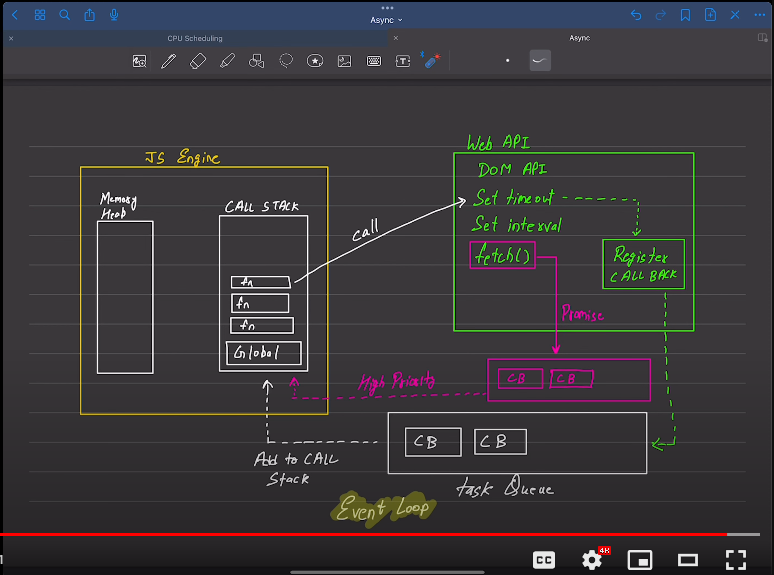 Async
CPU Scheduling
Async
JS Engine
Memory
Heab
CALL STACK
fn
fn
fn
Global
call
Web API
DOM API
Set timeout
Set interval
fetch()
Register
CALL BACK
Promise
CB
CB
High Priority
CB
CB
Add to CALL
Stack
task Queue
Event Loop
CC
4K